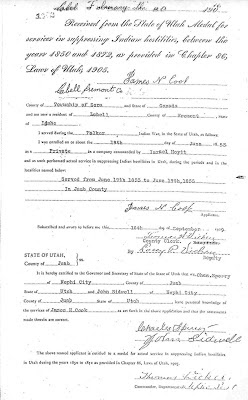 Received from the State of Utah Medal for
services in suppressing Indian hostilities, between the
years 1850 and 1872, as provided in Chapter 86,
Laws of Utah, 1905.
James N Cool
County of Township of Zora State of Canada
and am now a resident of Labell County of Fremont State of
Idaho
I served during the Walker Indian War, in the State of Utah, as follows:
I was enlisted on or about the 19th day of June 1853
as a Private in a company commanded by
and as such performed actual service in suppressing Indian hostilities in Utah, during the periods and in the
localities named below:
Served from June 19th, 1853 to June 19th, 1855
In Juab County
James N. Cool
Applicant.
Subscribed and sworn to before me this 10th day of September 1909.
County Clerk.
Deputy
STATE OF UTAH,
County of Juab
It is hereby certified to the Governor and Secretary of State of the State of Utah that we,
of Nephi City County of Juab State of
Utah and John Sidwell of Nephi City
County of Juab State of Utah have personal knowledge of
the services of James N. Cook as set forth in the above Application and that the statements
made therein are correct.
John Sidwell
The above-named applicant is entitled to a medal for actual service in suppressing Indian hostilities
in Utah during the years 1850 to 1872 as provided in Chapter 86, Laws of Utah, 1905.